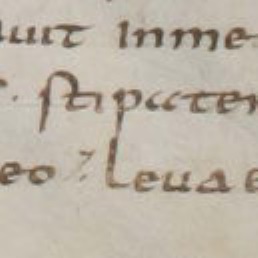 uit inme
stipater
eo : leua e